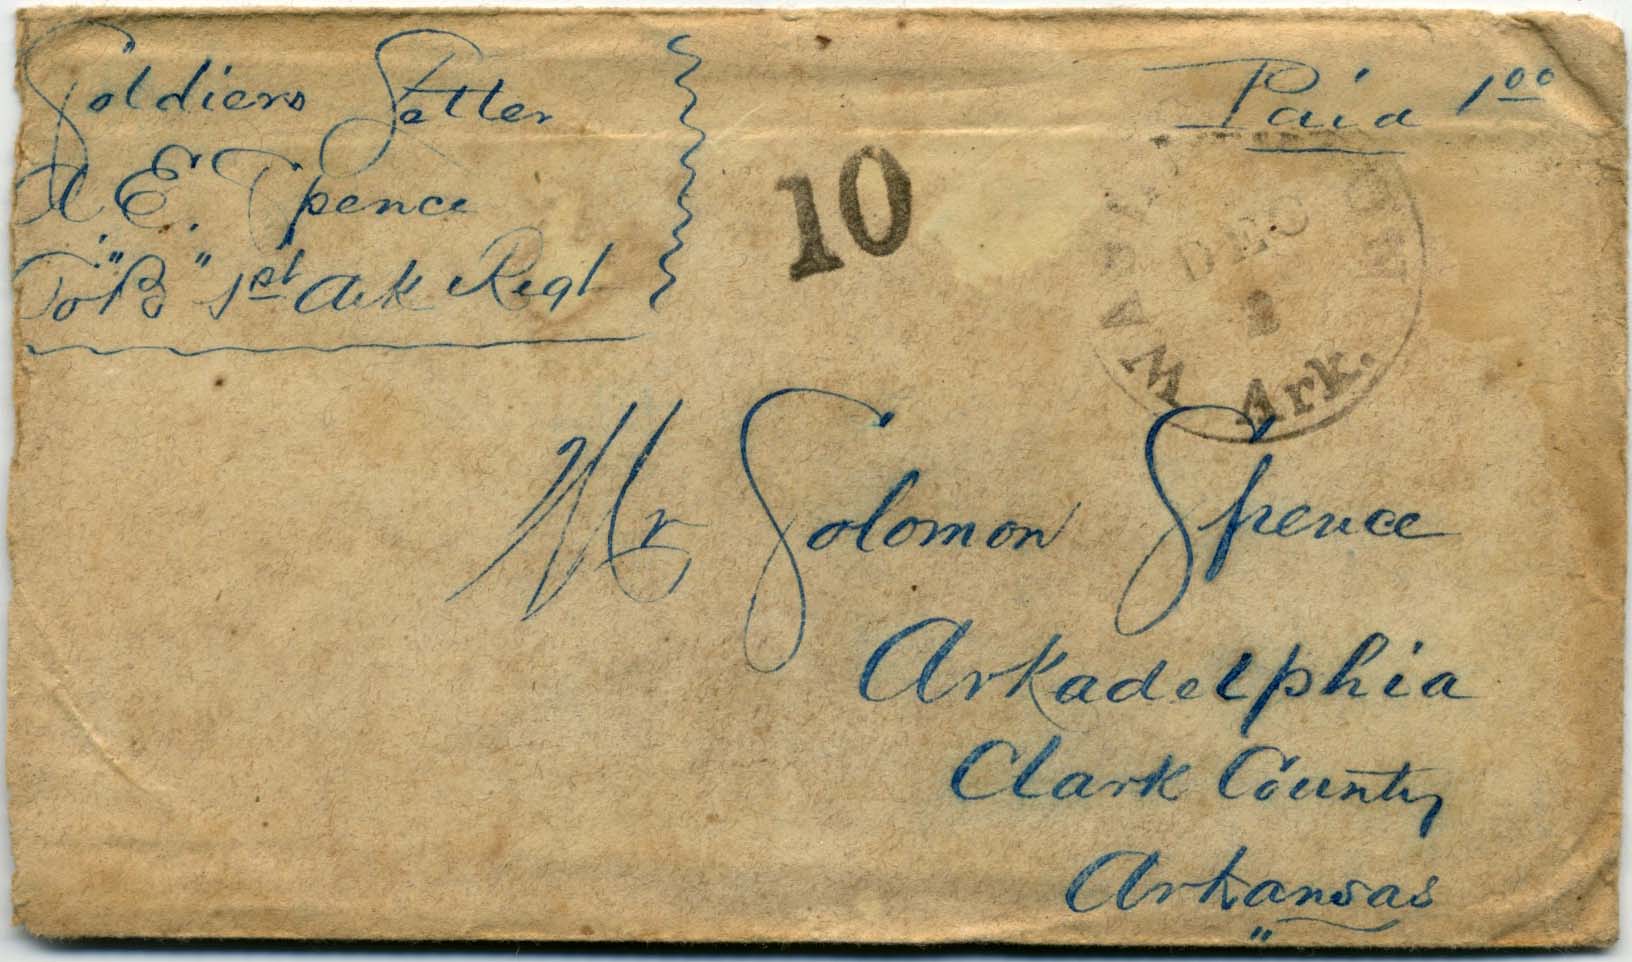 Soldiers Letter
A. E. Spence
Co "B" 1st Ark Regt
Paid 1 00
10
WASHINGTON
DEC
2
Ark.
Mr Solomon Spence
Arkadelphia
Clark County
Arkansas